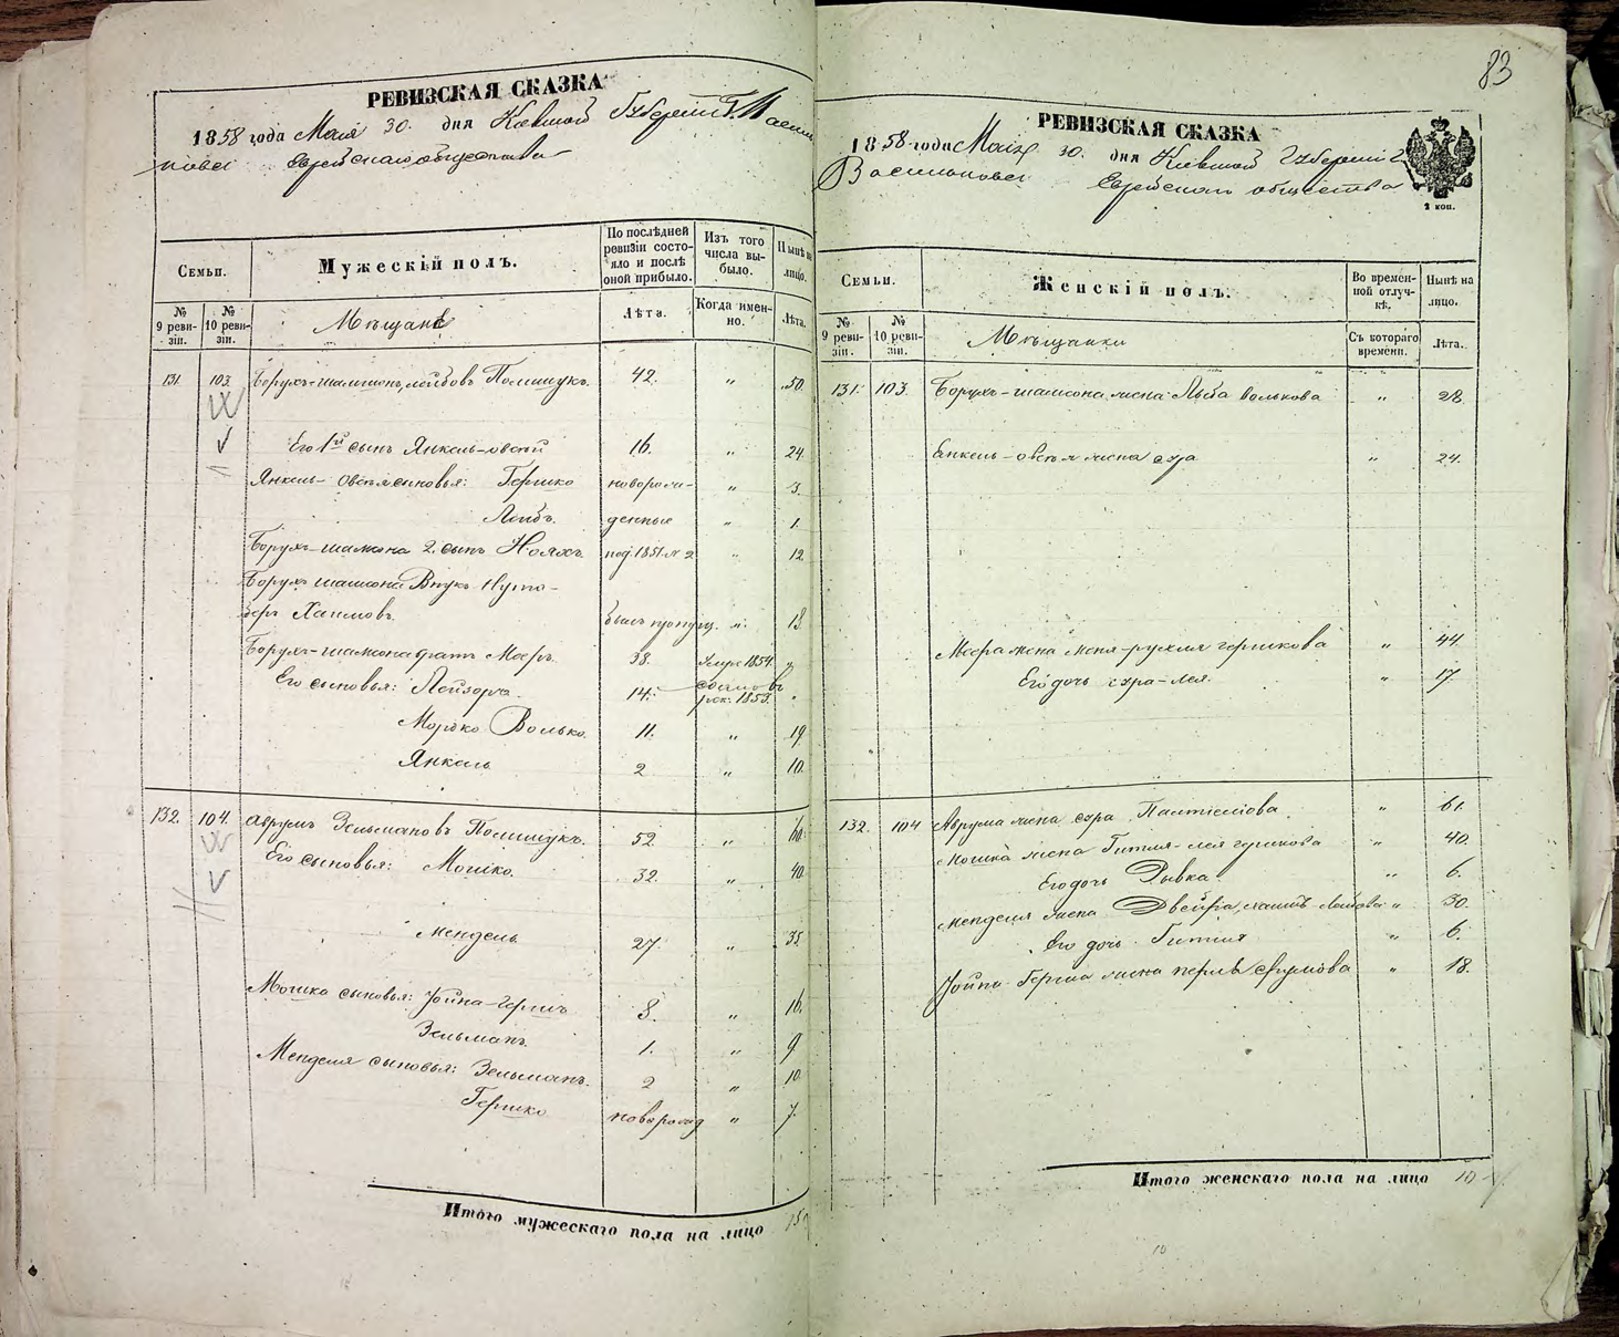 РЕВИЗСКАЯ СКАЗКА
1858 года Мая 30. дня Кіевской Губерніи Г. Василь
кова Еврейскаго общества
Семьи.
Мужескій полъ.
По послѣдней ревизіи состояло и послѣ оной прибыло.
Изъ того числа выбыло.
Нынѣ на лицо.
№ 9 ревизіи.
№ 10 ревизіи.
Мѣщане
Лѣта.
Когда именно.
Лѣта.
131. 103. Борухъ-шамшонъ Лейбовъ Полищукъ. 42. " 50.
Его 1й сынъ Янкель-овсей 16. " 24
Янкель-Овсея сыновья: Гершко новорож- " 3.
Лейбъ. денные " 1.
Борухъ-шамшона 2. сынъ Нояхъ. под. 1851. № 2 " 12
Борухъ шамшона Внукъ Нута-
беръ Хаимовъ. былъ пропущ. " 13.
Борухъ-шамшона братъ Мееръ. 38. Умре 1854. "
Его сыновья: Лейзоръ. 14. сданъ въ рек: 1853. "
Мордко Волько. 11. " 19
Янкель 2 " 10.
132. 104. Аврумъ Зельмановъ Полищукъ. 52. " 60.
Его сыновья: Мошко. 32. " 40
Мендель 27. " 35
Мошка сыновья: Іойна-Гершъ 8. " 16.
Зельманъ. 1. " 9
Менделя сыновья: Зельманъ. 2 " 10
Гершко новорожд " 7.
Итого мужескаго пола на лицо 15
83
РЕВИЗСКАЯ СКАЗКА
1858 года Мая 30. дня Кіевской Губерніи Г.
Василькова Еврейскаго общества
2 коп.
Семьи.
Женскій полъ.
Во временной отлучкѣ.
Нынѣ на лицо.
№ 9 ревизіи.
№ 10 ревизіи.
Мѣщанки
Съ котораго времени.
Лѣта.
131. 103. Борухъ-шамшона жена Лыба Волькова " 28
Янкель-овсея жена сура " 24.
Меера жена Меня-рухля гершкова " 44.
Его дочь сура-лея. " 17.
132. 104 Аврума жена сура Палтіелова " 61.
Мошка жена Гитля-лея гершкова " 40.
Его дочь Рывка. " 6.
Менделя жена Двейра, " 30.
Его дочь Гитля " 6.
Іойна-Герша жена перля срулова " 18.
Итого женскаго пола на лицо 10
10